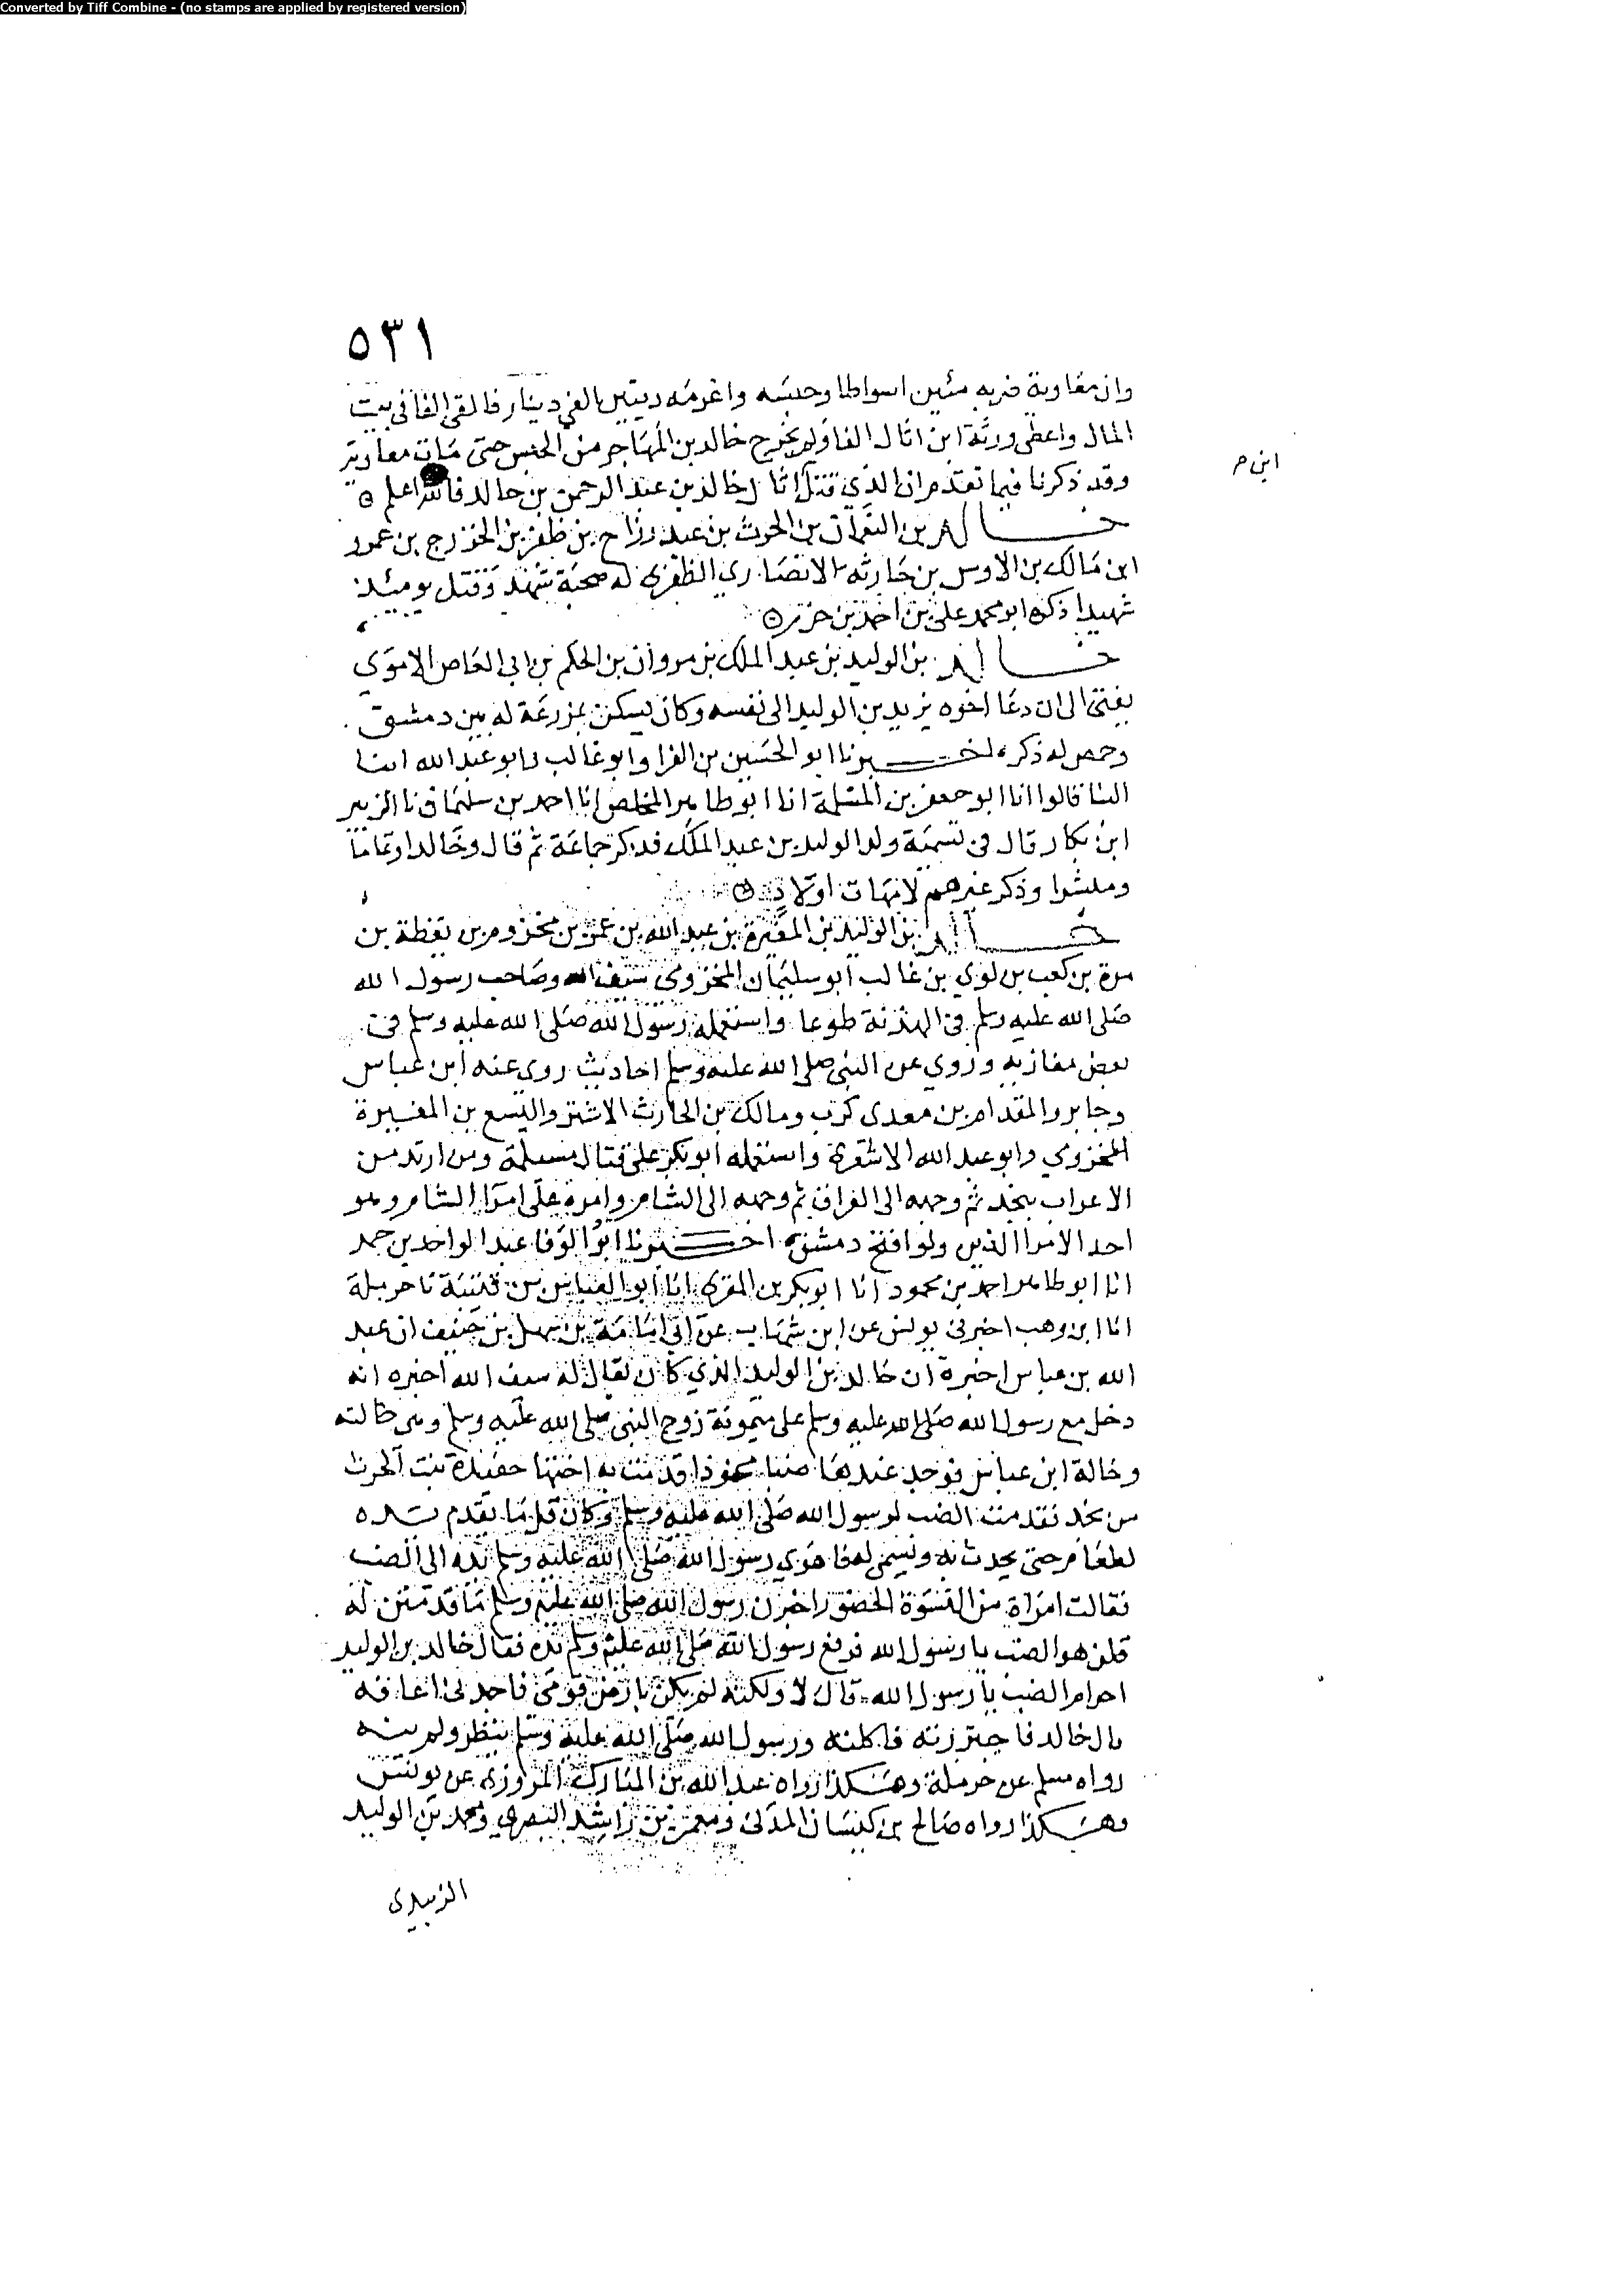 Converted by Tiff Combine - (no stamps are applied by registered version)
٥٣١
وان معاوية ضربه مئين اسواطا وحبسه واغرمه ديتين الفي دينار فالقى الفا في بيت
المال واعطى ورثة ابن اثال الفا ولم يخرج خالد بن المهاجر من الحبس حتى مات معاوية
ابن م
وقد ذكرنا فيما تقدم ان الذي قتل اثال خالد بن عبد الرحمن بن خالد فالله اعلم ٥
خالد بن النعمان بن الحرث بن عبد رزاح بن ظفر بن الخزرج بن عمرو
ابن مالك بن الاوس بن حارثة الانصاري الظفري له صحبة شهد وقتل يومئذ
شهيدا ذكره ابو محمد علي بن احمد بن حزم ٥
خالد بن الوليد بن عبد الملك بن مروان بن الحكم بن ابي العاص الاموي
بقي الى ان دعا اخوه يزيد بن الوليد الى نفسه وكان يسكن بمزرعة له بين دمشق
وحمص له ذكر اخبرنا ابو الحسين بن الفرا وابو غالب وابو عبد الله ابنا
البنا قالوا انا ابو جعفر بن المسلمة انا ابو طاهر المخلص انا احمد بن سليمان نا الزبير
ابن بكار قال في تسمية ولد الوليد بن عبد الملك فذكر جماعة ثم قال وخالدا وتماما
ومبشرا وذكر غيرهم لامهات اولاد ٥
خالد بن الوليد بن المغيرة بن عبد الله بن عمر بن مخزوم بن يقظة بن
مرة بن كعب بن لوي بن غالب ابو سليمان المخزومي سيف الله وصاحب رسول الله
صلى الله عليه وسلم في الهدنة طوعا واستعمله رسول الله صلى الله عليه وسلم في
بعض مغازيه وروي عن النبي صلى الله عليه وسلم احاديث روى عنه ابن عباس
وجابر والمقدام بن معدي كرب ومالك بن الحارث الاشتر واليسع بن المغيرة
المخزومي وابو عبد الله الاشعري واستعمله ابو بكر على قتال مسيلمة ومن ارتد من
الاعراب بنجد ثم وجهه الى العراق ثم وجهه الى الشام وامره على امرا الشام وهو
احد الامرا الذين ولوا فتح دمشق اخبرنا ابو الوفا عبد الواحد بن حمد
انا ابو طاهر احمد بن محمود انا ابو بكر بن المقري انا ابو العباس بن قتيبة نا حرملة
انا ابن وهب اخبرني يونس عن ابن شهاب عن ابي امامة بن سهل بن حنيف ان عبد
الله بن عباس اخبره ان خالد بن الوليد الذي كان يقال له سيف الله اخبره انه
دخل مع رسول الله صلى الله عليه وسلم على ميمونة زوج النبي صلى الله عليه وسلم وهي خالته
وخالة ابن عباس فوجد عندها ضبا محنوذا قدمت به اختها حفيدة بنت الحرث
من نجد فقدمت الضب لرسول الله صلى الله عليه وسلم وكان قل ما يقدم يده
لطعام حتى يحدث به ويسمى له فاهوى رسول الله صلى الله عليه وسلم يده الى الضب
فقالت امراة من النسوة الحضور اخبرن رسول الله صلى الله عليه وسلم ما قدمتن له
قلن هو الضب يا رسول الله فرفع رسول الله صلى الله عليه وسلم يده فقال خالد بن الوليد
احرام الضب يا رسول الله قال لا ولكنه لم يكن بارض قومي فاجدني اعافه
قال خالد فاجتررته فاكلته ورسول الله صلى الله عليه وسلم ينظر ولم ينهه
رواه مسلم عن حرملة وهكذا رواه عبد الله بن المبارك المروزي عن يونس
وهكذا رواه صالح بن كيسان المدني ومعمر بن راشد البصري ومحمد بن الوليد
الزبيدي